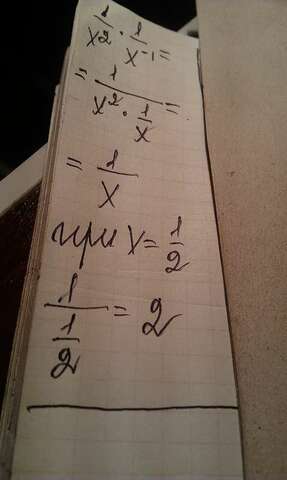 1/x² · 1/x⁻¹ =
= 1/(x² · 1/x) =
= 1/x
при x = 1/2
1/(1/2) = 2